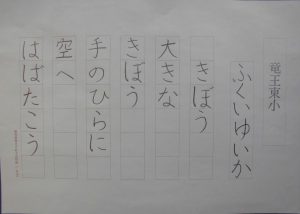 竜王東小
ふくいゆいか
きぼう
大きな
きぼう
手のひらに
空へ
はばたこう